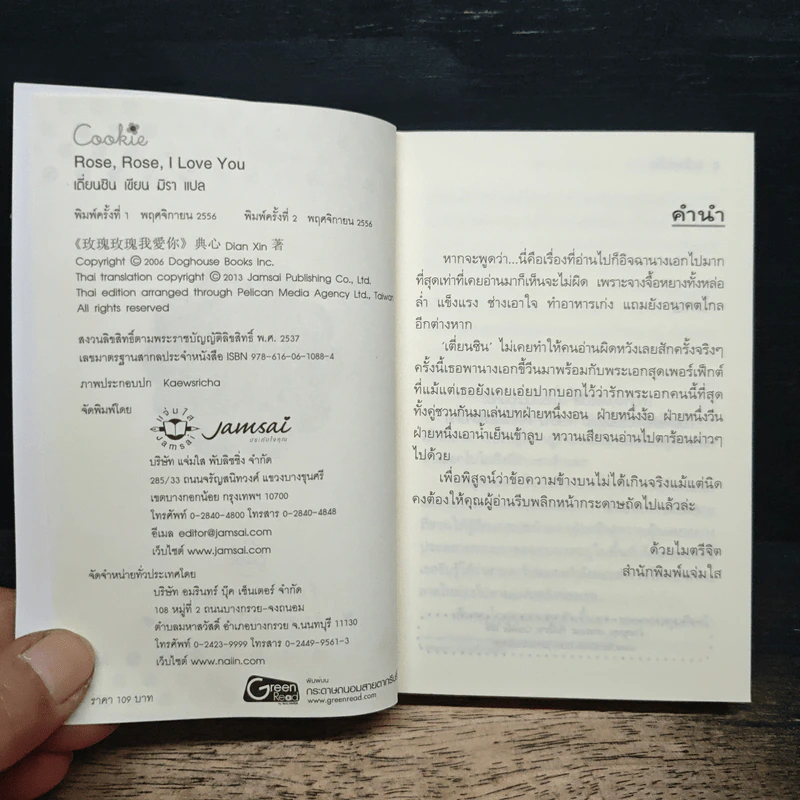 Cookie
Rose, Rose, I Love You
เตี่ยนซิน เขียน มิรา แปล
พิมพ์ครั้งที่ 1 พฤศจิกายน 2556 พิมพ์ครั้งที่ 2 พฤศจิกายน 2556
《玫瑰玫瑰我愛你》典心 Dian Xin 著
Copyright © 2006 Doghouse Books Inc.
Thai translation copyright © 2013 Jamsai Publishing Co., Ltd.
Thai edition arranged through Pelican Media Agency Ltd., Taiwan
All rights reserved
สงวนลิขสิทธิ์ตามพระราชบัญญัติลิขสิทธิ์ พ.ศ. 2537
เลขมาตรฐานสากลประจำหนังสือ ISBN 978-616-06-1088-4
ภาพประกอบปก Kaewsricha
จัดพิมพ์โดย
แจ่มใส
Jamsai
Jamsai
ประดับใจคุณ
บริษัท แจ่มใส พับลิชชิ่ง จำกัด
285/33 ถนนจรัญสนิทวงศ์ แขวงบางขุนศรี
เขตบางกอกน้อย กรุงเทพฯ 10700
โทรศัพท์ 0-2840-4800 โทรสาร 0-2840-4848
อีเมล editor@jamsai.com
เว็บไซต์ www.jamsai.com
จัดจำหน่ายทั่วประเทศโดย
บริษัท อมรินทร์ บุ๊ค เซ็นเตอร์ จำกัด
108 หมู่ที่ 2 ถนนบางกรวย-จงถนอม
ตำบลมหาสวัสดิ์ อำเภอบางกรวย จ.นนทบุรี 11130
โทรศัพท์ 0-2423-9999 โทรสาร 0-2449-9561-3
เว็บไซต์ www.naiin.com
Green Read
พิมพ์บน
กระดาษถนอมสายตากรีนรี
www.greenread.com
ราคา 109 บาท
คำนำ
หากจะพูดว่า...นี่คือเรื่องที่อ่านไปก็อิจฉานางเอกไปมาก
ที่สุดเท่าที่เคยอ่านมาก็เห็นจะไม่ผิด เพราะจางจื้อหยางทั้งหล่อ
ล่ำ แข็งแรง ช่างเอาใจ ทำอาหารเก่ง แถมยังอนาคตไกล
อีกต่างหาก
'เตี่ยนซิน' ไม่เคยทำให้คนอ่านผิดหวังเลยสักครั้งจริงๆ
ครั้งนี้เธอพานางเอกขี้วีนมาพร้อมกับพระเอกสุดเพอร์เฟ็กต์
ที่แม้แต่เธอยังเคยเอ่ยปากบอกไว้ว่ารักพระเอกคนนี้ที่สุด
ทั้งคู่ชวนกันมาเล่นบทฝ่ายหนึ่งงอน ฝ่ายหนึ่งง้อ ฝ่ายหนึ่งวีน
ฝ่ายหนึ่งเอาน้ำเย็นเข้าลูบ หวานเสียจนอ่านไปตาร้อนผ่าวๆ
ไปด้วย
เพื่อพิสูจน์ว่าข้อความข้างบนไม่ได้เกินจริงแม้แต่นิด
คงต้องให้คุณผู้อ่านรีบพลิกหน้ากระดาษถัดไปแล้วล่ะ
ด้วยไมตรีจิต
สำนักพิมพ์แจ่มใส